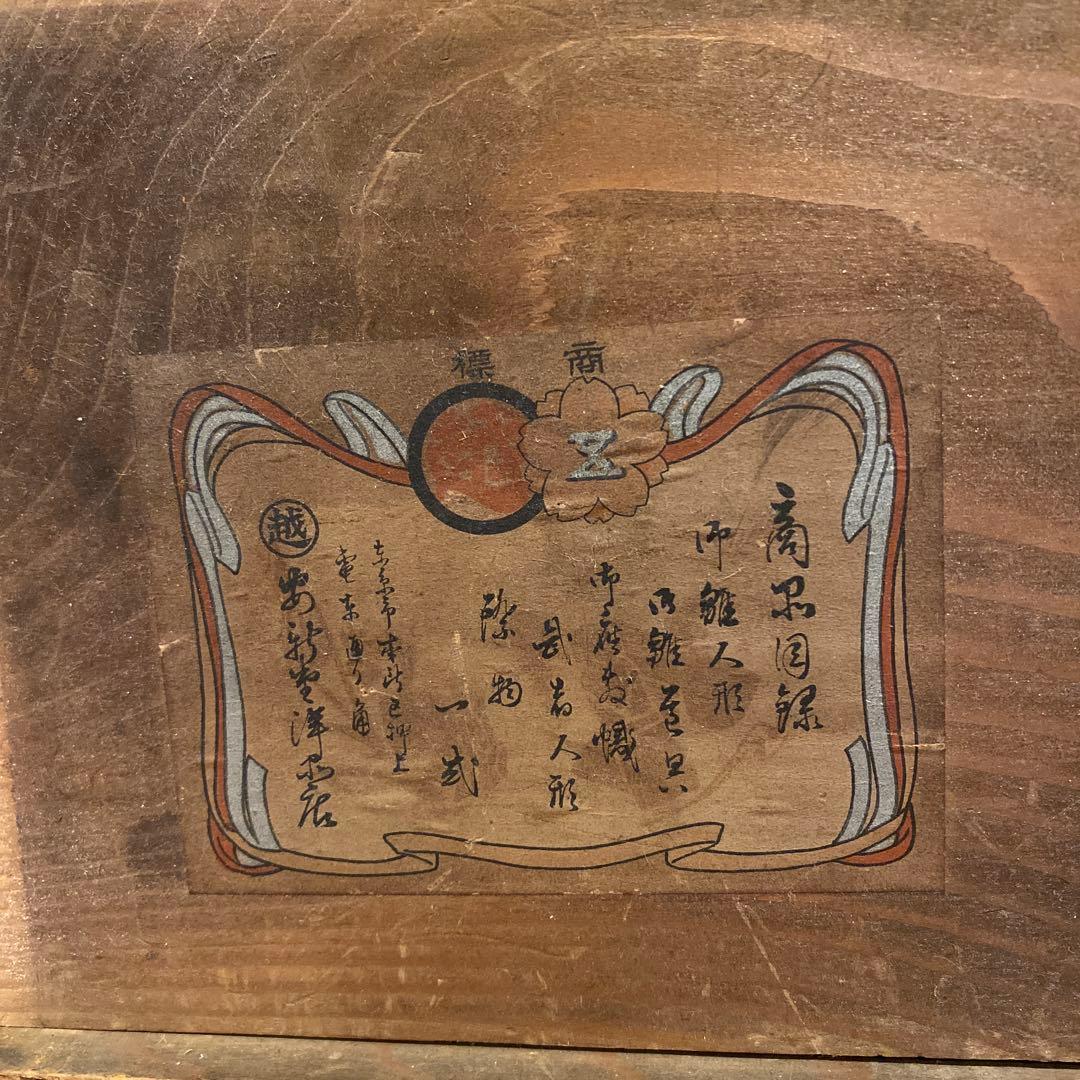 商標
商品目録
御雛人形
御雛道具
御座敷幟
武者人形
際物
一式
東京市本所区押上
電車通り角
越
安新堂洋品店